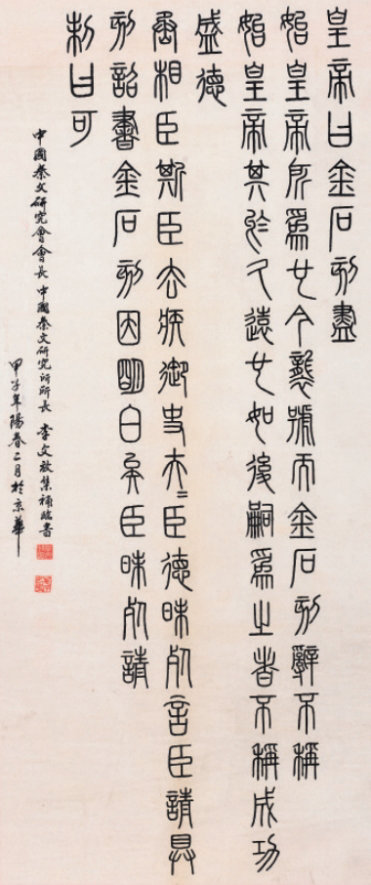 皇帝曰金石刻盡
始皇帝所爲也今襲號而金石刻辭不稱
始皇帝其於久遠也如後嗣爲之者不稱成功
盛德
丞相臣斯臣去疾御史夫=臣德昧死言臣請具
刻詔書金石刻因明白矣臣昧死請
制曰可
中國秦文研究會會長 中國秦文研究所所長 李文放集補臨書
甲子年陽春二月於京華